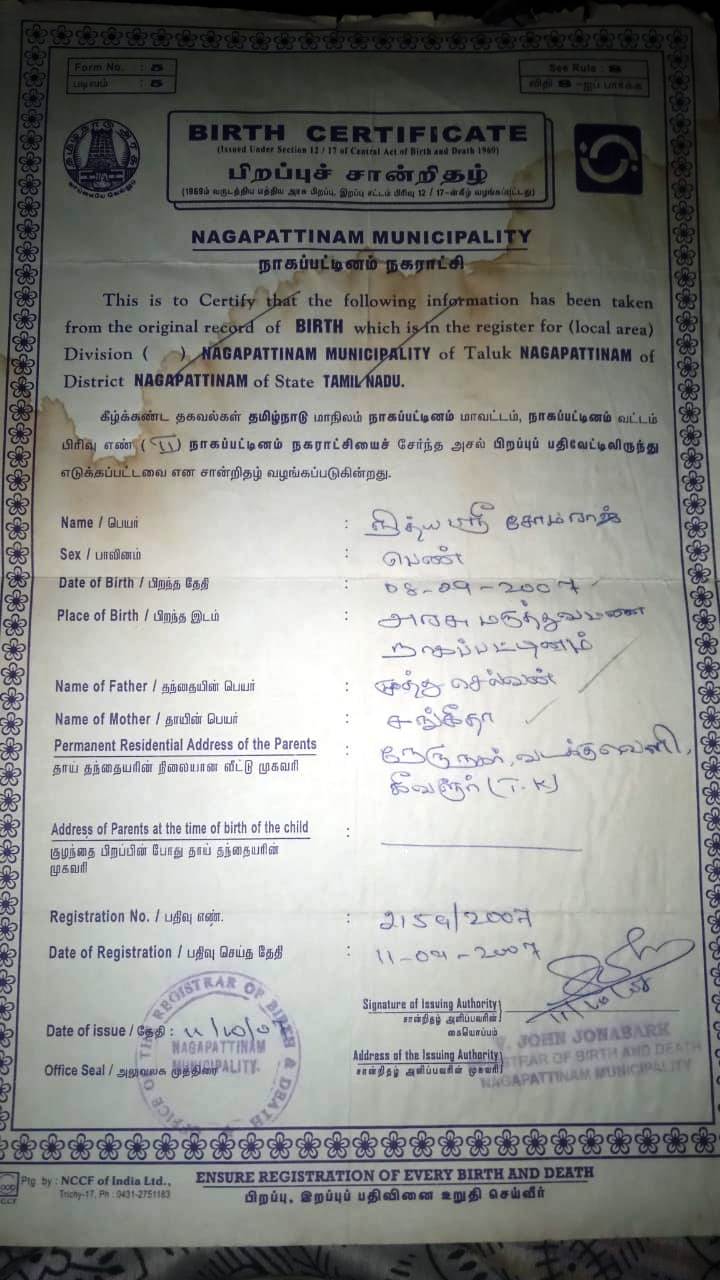 Form No. : 5
படிவம் : 5
See Rule : 8
விதி 8 -ஐப் பார்க்க
BIRTH CERTIFICATE
(Issued Under Section 12 / 17 of Central Act of Birth and Death 1969)
பிறப்புச் சான்றிதழ்
(1969ம் வருடத்திய மத்திய அரசு பிறப்பு, இறப்பு சட்டம் பிரிவு 12 / 17-ன்கீழ் வழங்கப்பட்டது)
NAGAPATTINAM MUNICIPALITY
நாகப்பட்டினம் நகராட்சி
This is to Certify that the following information has been taken
from the original record of BIRTH which is in the register for (local area)
Division ( ) NAGAPATTINAM MUNICIPALITY of Taluk NAGAPATTINAM of
District NAGAPATTINAM of State TAMIL NADU.
கீழ்க்கண்ட தகவல்கள் தமிழ்நாடு மாநிலம் நாகப்பட்டினம் மாவட்டம், நாகப்பட்டினம் வட்டம்
பிரிவு எண் ( II ) நாகப்பட்டினம் நகராட்சியைச் சேர்ந்த அசல் பிறப்புப் பதிவேட்டிலிருந்து
எடுக்கப்பட்டவை என சான்றிதழ் வழங்கப்படுகின்றது.
Name / பெயர் : நித்ய ஸ்ரீ சோம்ராஜ்
Sex / பாலினம் : பெண்
Date of Birth / பிறந்த தேதி : 08-09-2007
Place of Birth / பிறந்த இடம் : அரசு மருத்துவமனை
நாகப்பட்டினம்
Name of Father / தந்தையின் பெயர் : முத்து செல்வன்
Name of Mother / தாயின் பெயர் : சங்கீதா
Permanent Residential Address of the Parents : நேரு நகர், வடக்குவெளி,
தாய் தந்தையரின் நிலையான வீட்டு முகவரி கீவளூர் (T.K)
Address of Parents at the time of birth of the child :
குழந்தை பிறப்பின் போது தாய் தந்தையரின்
முகவரி
Registration No. / பதிவு எண். : 2159/2007
Date of Registration / பதிவு செய்த தேதி : 11-09-2007
Signature of Issuing Authority
சான்றிதழ் அளிப்பவரின்
கையொப்பம்
Date of issue / தேதி : 11/10/07
Office Seal / அலுவலக முத்திரை
OFFICE OF THE REGISTRAR OF BIRTH & DEATH
NAGAPATTINAM
MUNICIPALITY.
Address of the Issuing Authority
சான்றிதழ் அளிப்பவரின் முகவரி
JOHN JONABARK
REGISTRAR OF BIRTH AND DEATH
NAGAPATTINAM MUNICIPALITY
Ptg. by : NCCF of India Ltd.,
Trichy-17, Ph : 0431-2751183
ENSURE REGISTRATION OF EVERY BIRTH AND DEATH
பிறப்பு, இறப்புப் பதிவினை உறுதி செய்வீர்